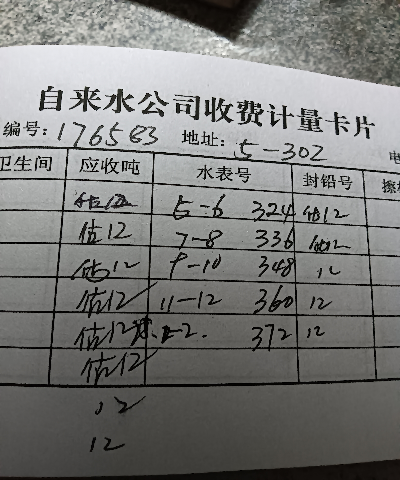 自来水公司收费计量卡片
编号: 176583 地址: 5-302
卫生间 应收吨 水表号 封铅号
估12 5-6 324 估12
估12 7-8 336 估12
估12 9-10 348 12
估12 11-12 360 12
估12 1-2. 372 12
估12
12
12